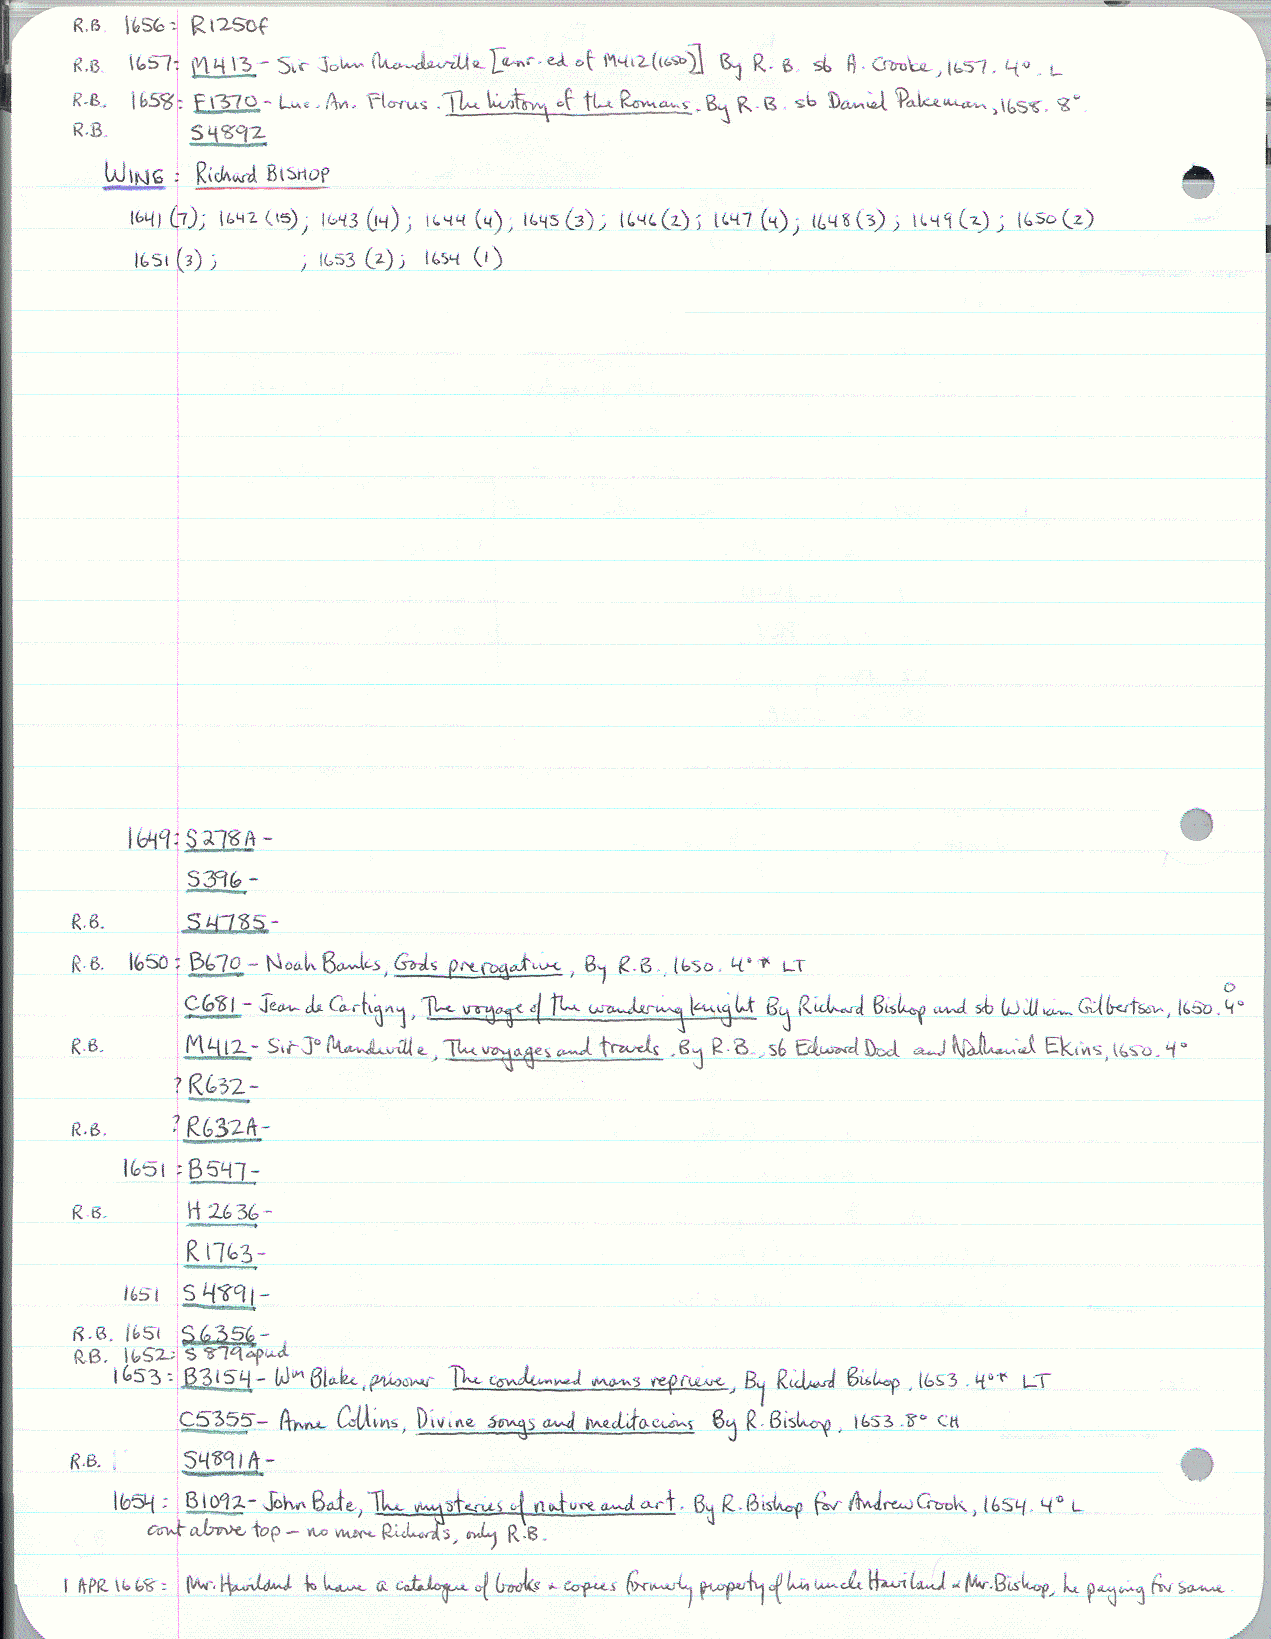 R.B. 1656: R1250f
R.B. 1657: M413 - Sir John Mandeville [anr. ed of M412 (1650)] By R. B. sb A. Crooke, 1657. 4° L
R.B. 1658: F1370 - Luc. An. Florus. The history of the Romans. By R.B. sb Daniel Pakeman, 1658. 8°
R.B. S4892
WING: Richard BISHOP
1641 (7); 1642 (15); 1643 (14); 1644 (4); 1645 (3); 1646 (2); 1647 (4); 1648 (3); 1649 (2); 1650 (2)
1651 (3); ; 1653 (2); 1654 (1)
1649: S278A -
S396 -
R.B. S4785 -
R.B. 1650: B670 - Noah Banks, Gods prerogative, By R.B., 1650. 4° * LT
C681 - Jean de Cartigny, The voyage of the wandering knight By Richard Bishop and sb William Gilbertson, 1650. 4° O
R.B. M412 - Sir J° Mandeville, The voyages and travels. By R.B., sb Edward Dod and Nathaniel Ekins, 1650. 4°
? R632 -
R.B. ? R632A -
1651: B547 -
R.B. H2636 -
R1763 -
1651 S4891 -
R.B. 1651 S6356 -
R.B. 1652: S879 apud
1653: B3154 - Wm Blake, prisoner The condemned mans reprieve, By Richard Bishop, 1653. 4° * LT
C5355 - Anne Collins, Divine songs and meditacions By R. Bishop, 1653. 8° CH
R.B. S4891A -
1654: B1092 - John Bate, The mysteries of nature and art. By R. Bishop for Andrew Crook, 1654. 4° L
cont above top - no more Richards, only R.B.
1 APR 1668: Mr. Haviland to have a catalogue of books & copies formerly property of his uncle Haviland & Mr. Bishop, he paying for same